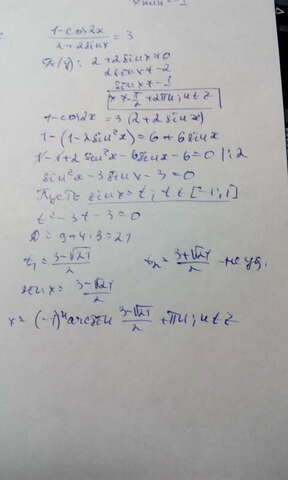 1-cos2x / 2+2sinx = 3
2+2sinx≠0
2sinx≠-2
sinx≠-1
x≠-π/2+2πn; n∈Z
1-cos2x=3(2+2sinx)
1-(1-2sin²x)=6+6sinx
1-1+2sin²x-6sinx-6=0 |:2
sin²x-3sinx-3=0
Пусть sinx=t, t∈[-1;1]
t²-3t-3=0
D=9+4·3=21
t₁=3-√21/2 t₂=3+√21/2 - не уд.
sinx=3-√21/2
x=(-1)ⁿarcsin 3-√21/2 +πn; n∈Z